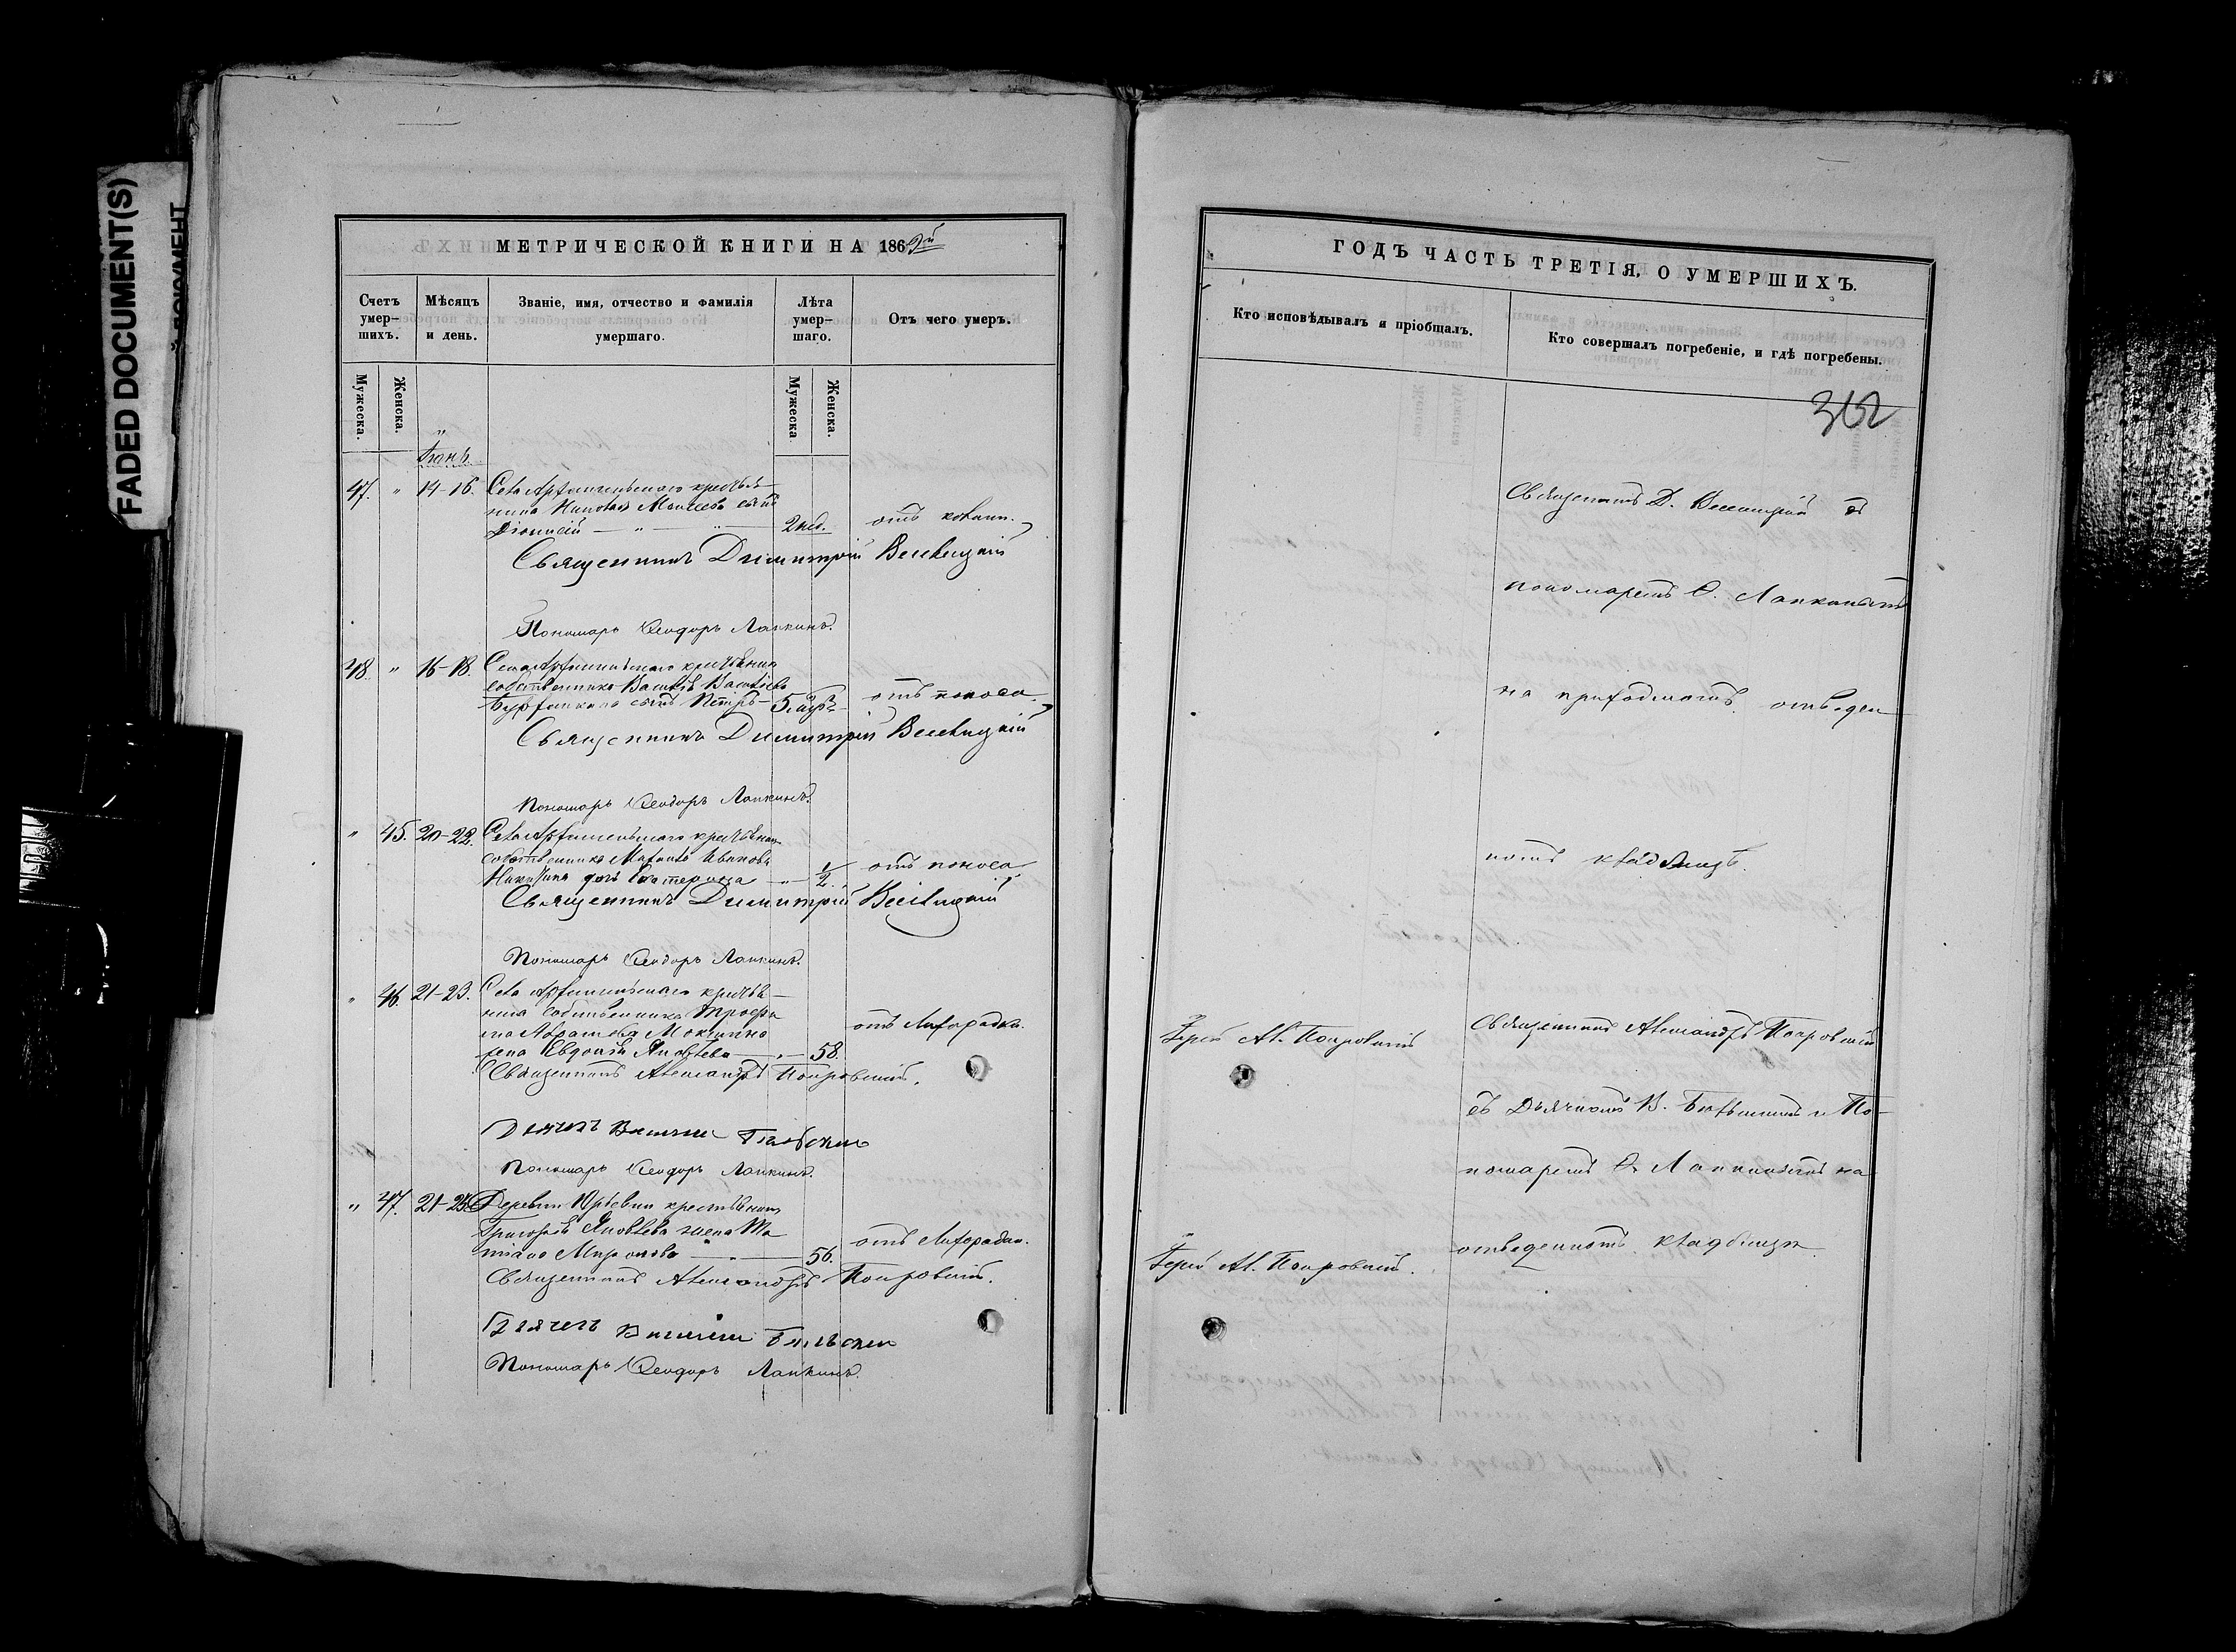 FADED DOCUMENT(S)
МЕТРИЧЕСКОЙ КНИГИ НА 1869й
Счетъ умер-шихъ.
Мѣсяцъ и день.
Званіе, имя, отчество и фамилія умершаго.
Лѣта умер-шаго.
Отъ чего умеръ.
Мужеска.
Женска.
Мужеска
Женска.
Іюнь
47. " 14-16. Села Архангельскаго крестья-
нина Николая Моисеева сынъ
Діонисій — " — " — 2 нед. отъ
Священникъ Димитрій Веселицкій
Пономарь Ѳеодоръ Лапкинъ.
48. " 16-18. Села Архангельскаго крестьянина
собственника Василія Васильева
сынъ Петръ — 5 отъ поноса
Священникъ Димитрій Веселицкій
Пономарь Ѳеодоръ Лапкинъ.
" 45. 20-22. Села Архангельскаго крестьянина
собственника Иванова
Никитина дочь Екатерина — " — 1/2. отъ поноса
Священникъ Димитрій Веселицкій
Пономарь Ѳеодоръ Лапкинъ.
" 46. 21-23. Села Архангельскаго крестья-
нина собственника Трофи
ма Абрамова
жена Евдокія Яковлева — " — 58. отъ лихорадки.
Священникъ Александръ Покровскій.
Дьячекъ Василій
Пономарь Ѳеодоръ Лапкинъ.
" 47. 21-23. Деревни Юрьевки крестьянина
Григорія Яковлева жена Та
тіана Миронова — " — 56. отъ лихорадки.
Священникъ Александръ Покровскій.
Дьячекъ Василій
Пономарь Ѳеодоръ Лапкинъ.
ГОДЪ ЧАСТЬ ТРЕТІЯ, О УМЕРШИХЪ.
Кто исповѣдывалъ и пріобщалъ.
Кто совершалъ погребеніе, и гдѣ погребены.
362
Священникъ Д. Веселицкій съ
пономаремъ Ѳ. Лапкинымъ
на приходскомъ отведен
номъ кладбищѣ.
Іерей Ал. Покровскій
Священникъ Александръ Покровскій
съ Дьячкомъ В. и По-
номаремъ Ѳ. Лапкинымъ на
отведенномъ кладбищѣ.
Іерей Ал. Покровскій.